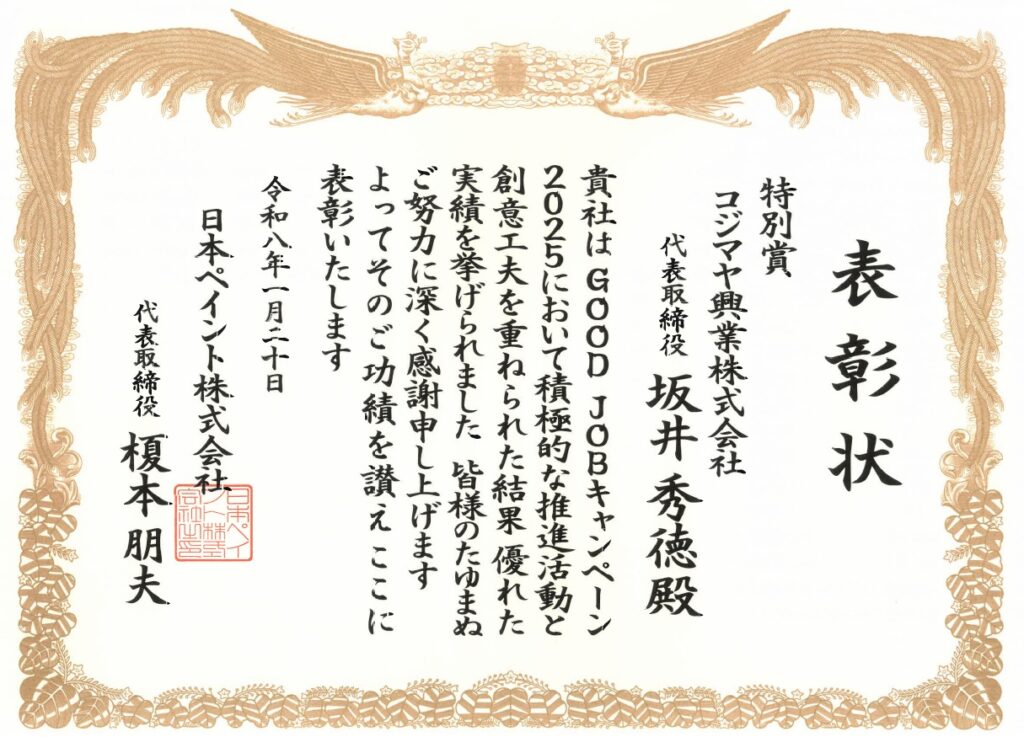 表彰状
特別賞
コジマヤ興業株式会社
代表取締役 坂井秀徳殿
貴社はGOOD JOBキャンペーン
2025において積極的な推進活動と
創意工夫を重ねられた結果 優れた
実績を挙げられました 皆様のたゆまぬ
ご努力に深く感謝申し上げます
よってそのご功績を讃え ここに
表彰いたします
令和八年一月二十日
日本ペイント株式会社
代表取締役 榎本朋夫
日本ペイ
ント株式
会社之印